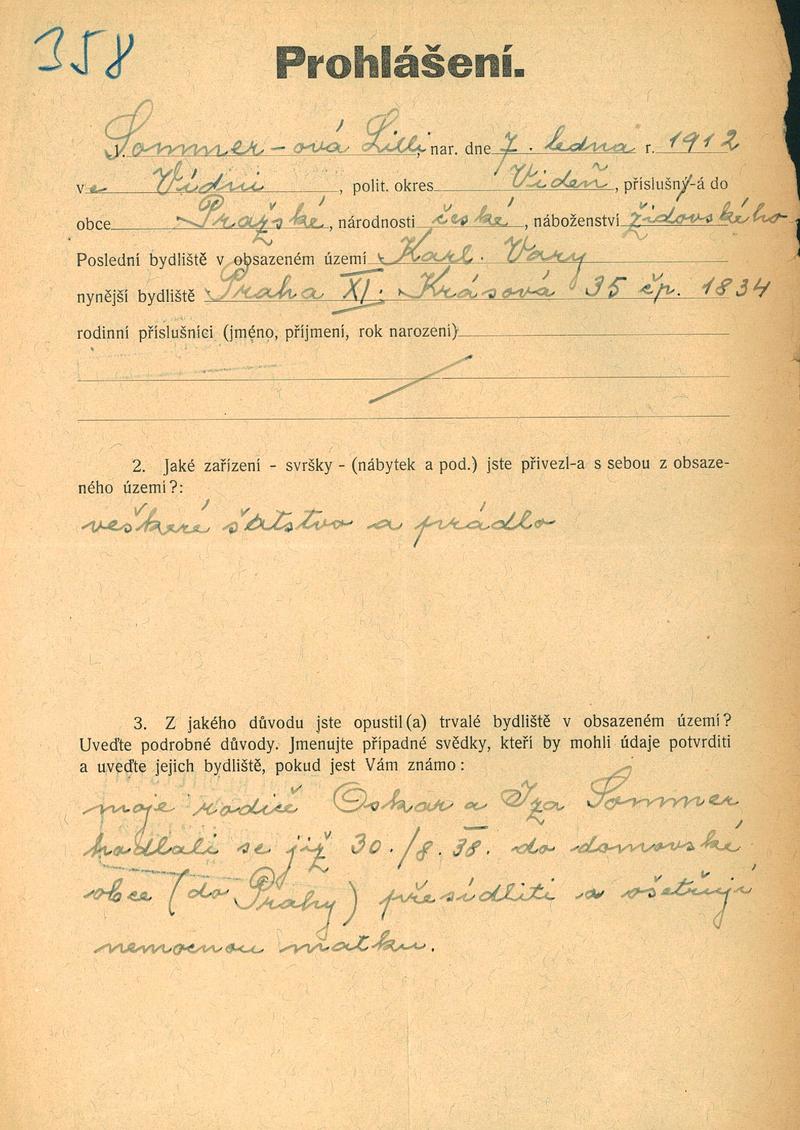 358
Prohlášení.
Sommer-ová Lilli, nar. dne 7. ledna r. 1912
ve Vídni, polit. okres Videň, příslušný-á do
obce Pražské, národnosti české, náboženství židovského
Poslední bydliště v obsazeném území Karl. Vary
nynější bydliště Praha XI. Krásová 35 čp. 1834
rodinní příslušníci (jméno, příjmení, rok narození)
2. Jaké zařízení - svršky - (nábytek a pod.) jste přivezl-a s sebou z obsaze-
ného území?:
veškeré šatstvo a prádlo
3. Z jakého důvodu jste opustil(a) trvalé bydliště v obsazeném území?
Uveďte podrobné důvody. Jmenujte případné svědky, kteří by mohli údaje potvrditi
a uveďte jejich bydliště, pokud jest Vám známo:
moje rodiče Oskar a Iza Sommer
hodlali se již 30./8. 38. do domovské
obce (do Prahy) přesídliti a ošetřuji
nemocnou matku.